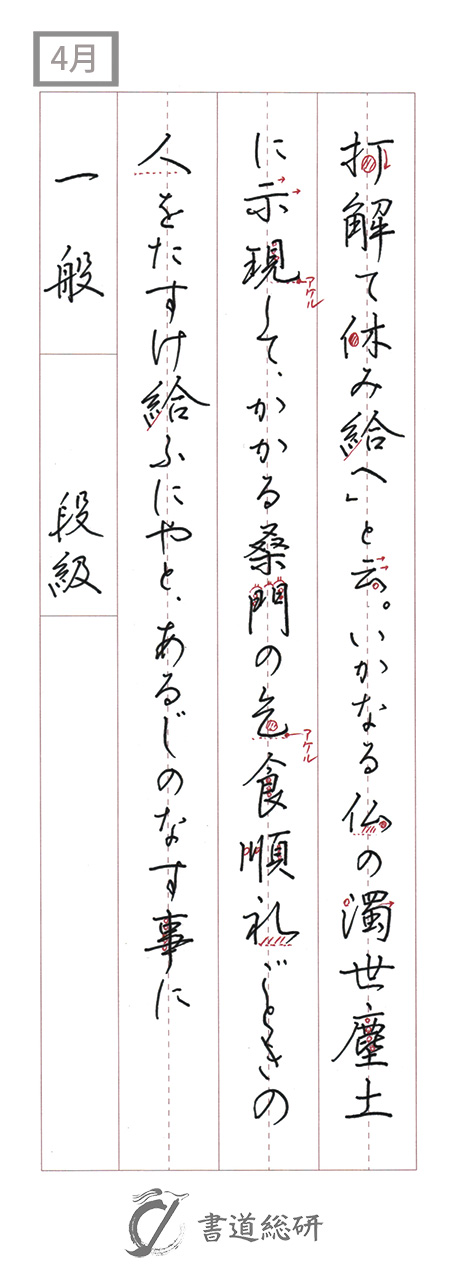 4月
打解て休み給へ」と云。いかなる仏の濁世塵土
に示現して、かかる桑門の乞食順礼ごときの
人をたすけ給ふにやと、あるじのなす事に
アケル
アケル
一般
段級
書道総研